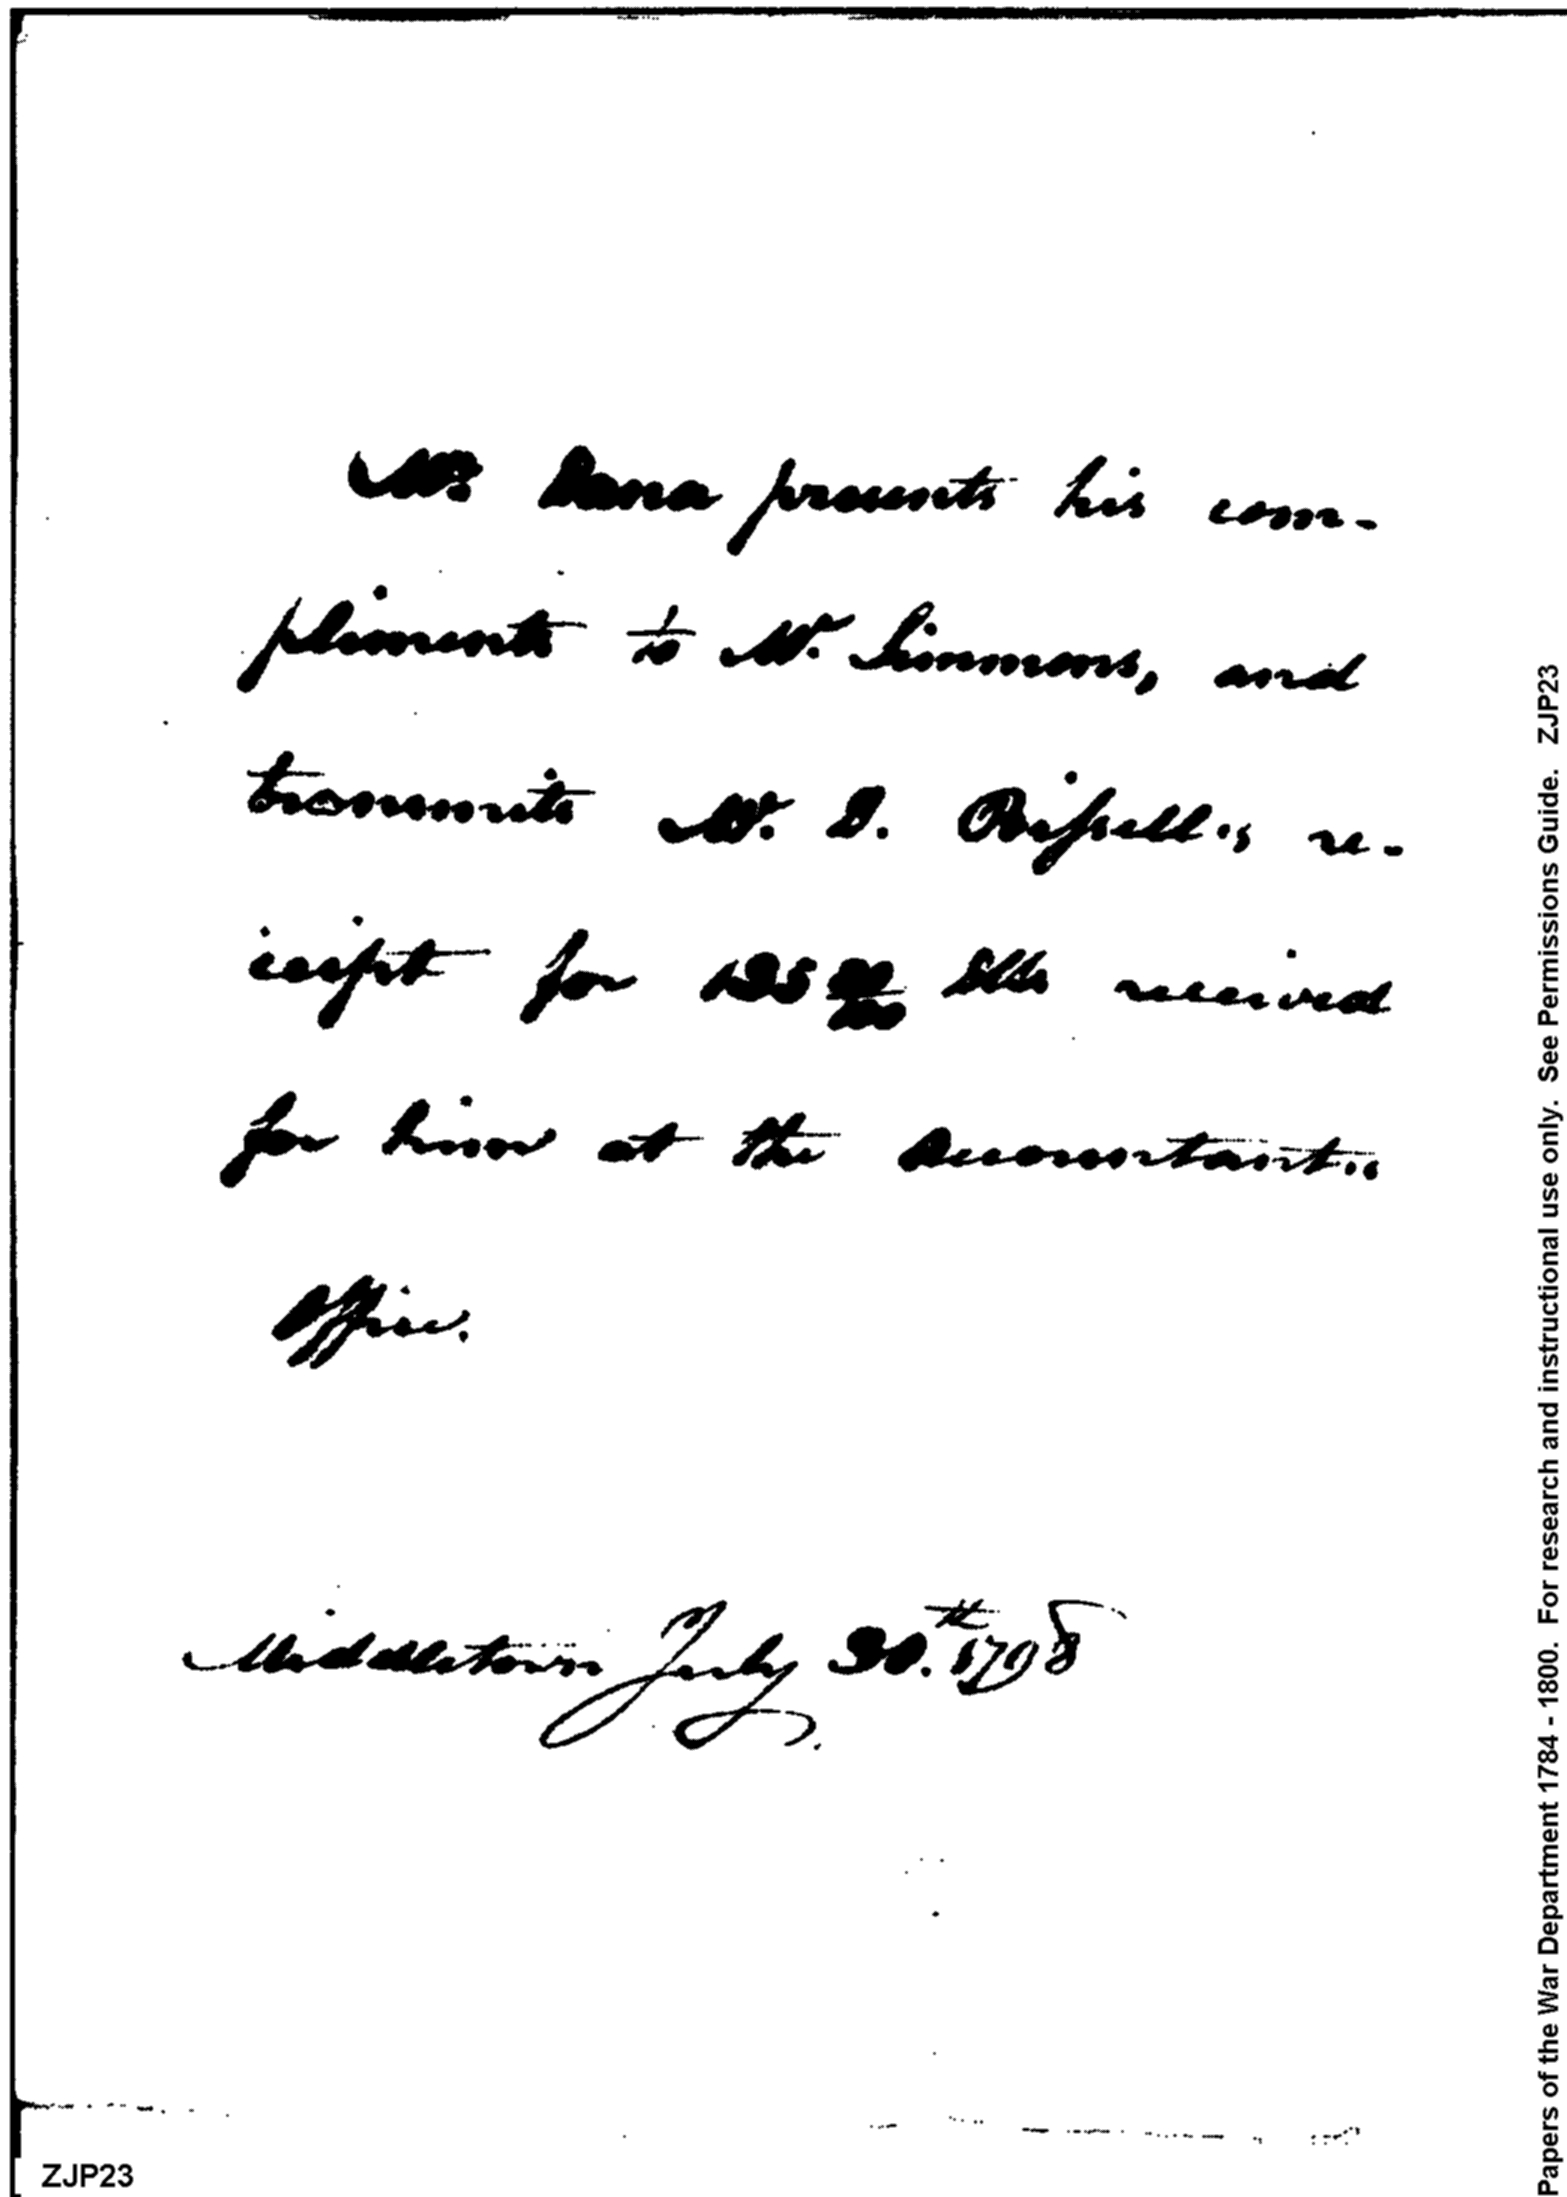 Mr. Dana presents his com-
pliments to Mr. Simmons, and
transmits Mr. D. re-
ceipt for Dlls received
for him at the Accountant's
Office.
Middletown July 30.th 1798
Papers of the War Department 1784 - 1800. For research and instructional use only. See Permissions Guide. ZJP23
ZJP23